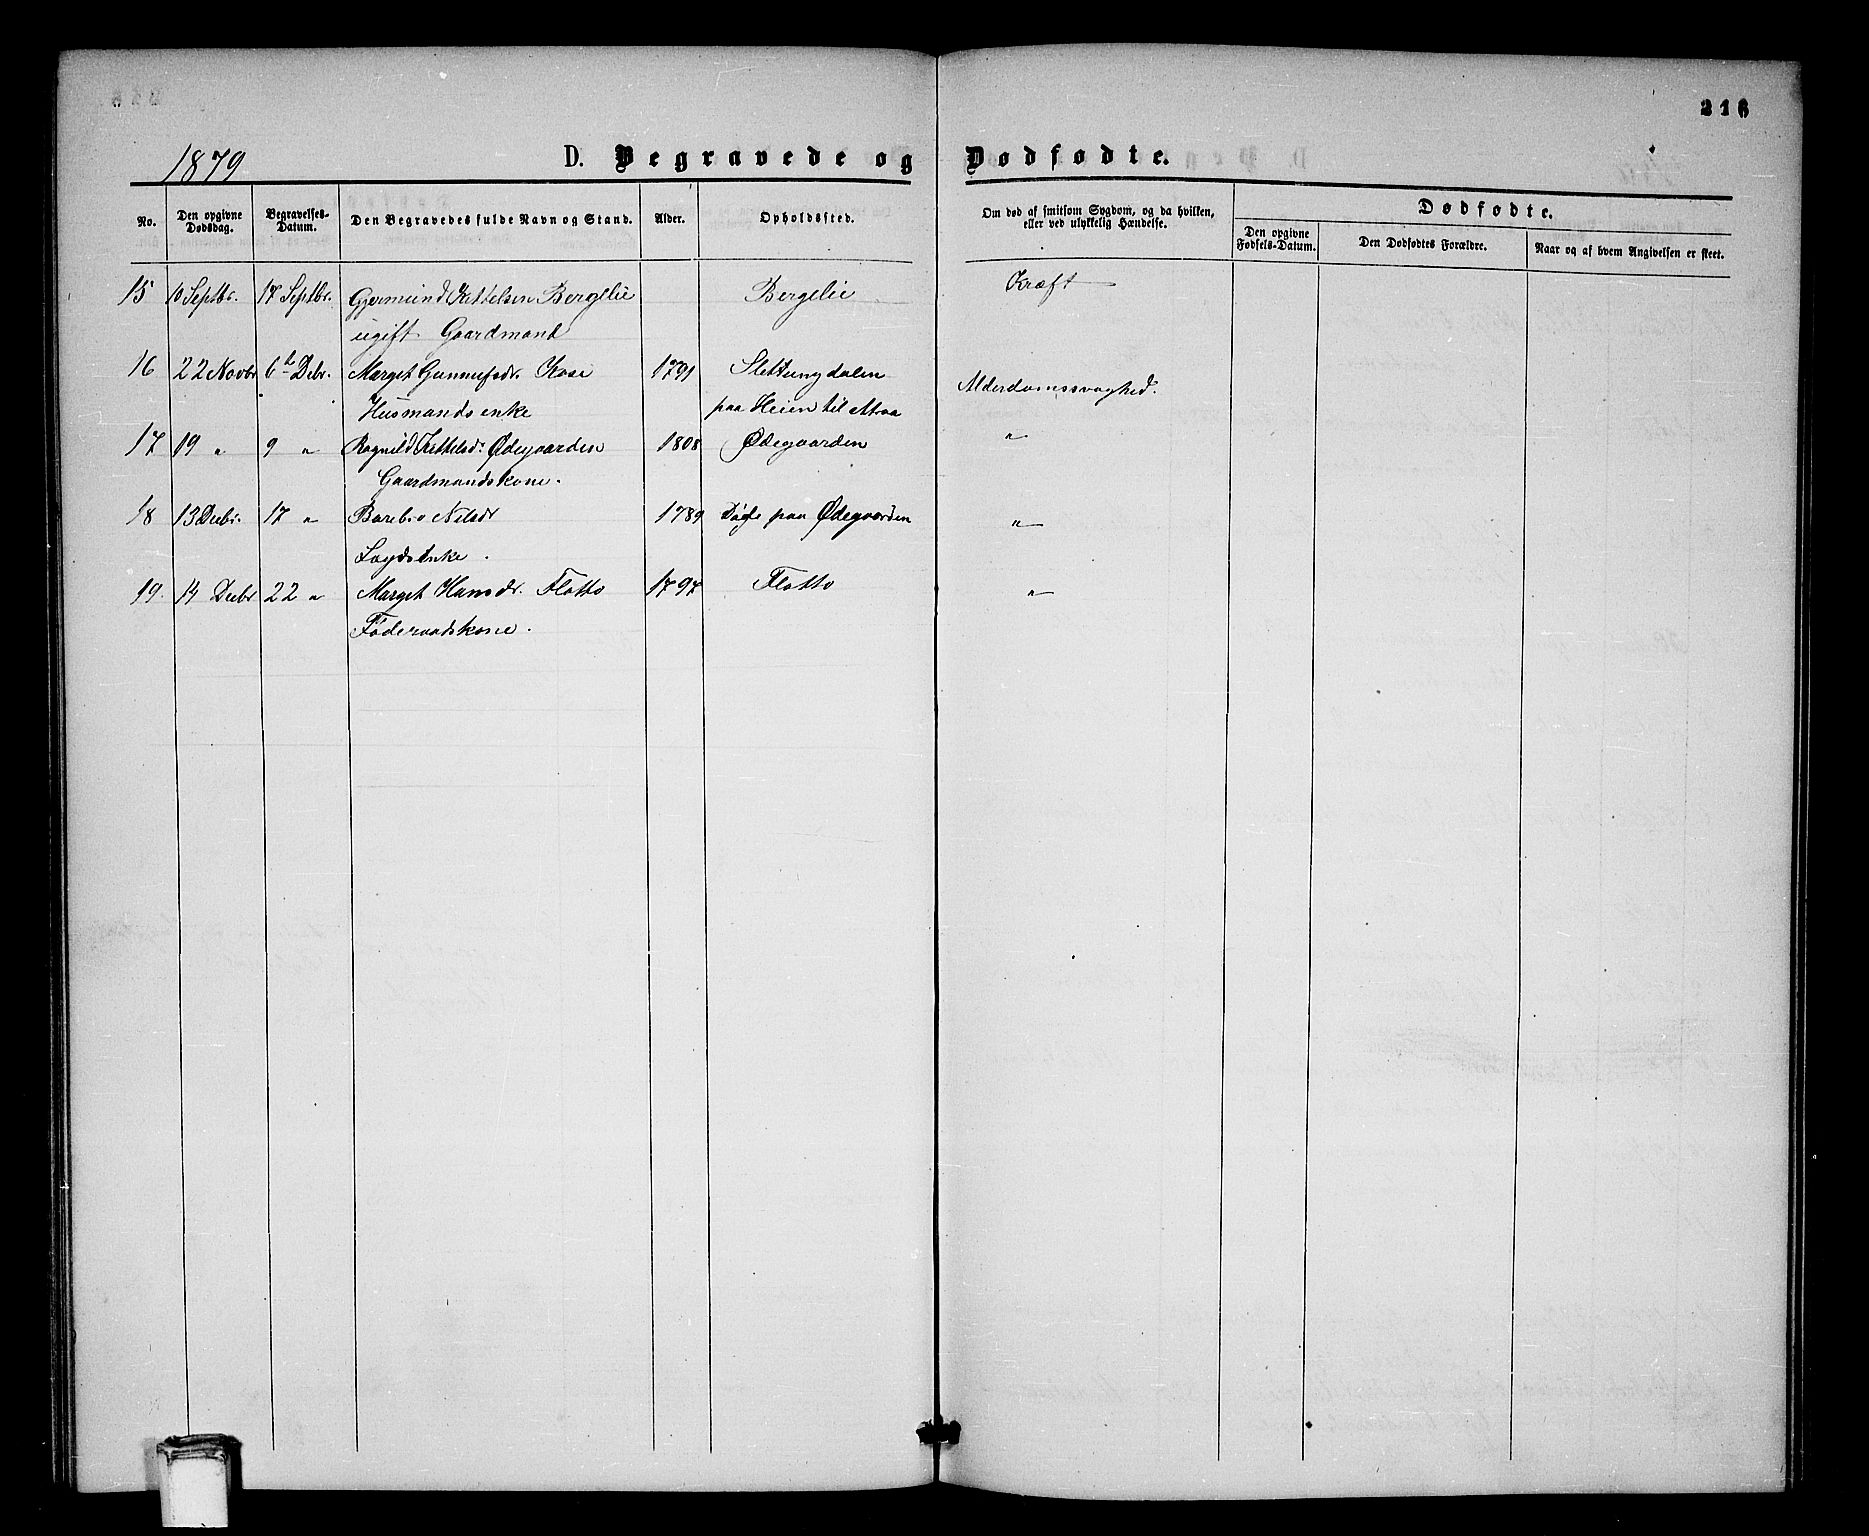 216
1879
D. Begravede og Dødfødte.
No.
Den opgivne Dødsdag.
Begravelses-Datum.
Den Begravedes fulde Navn og Stand.
Alder.
Opholdssted.
Om død af smitsom Sygdom, og da hvilken, eller ved ulykkelig Hændelse.
Dødfødte.
Den opgivne Fødsels-Datum.
Den Dødfødtes Forældre.
Naar og af hvem Angivelsen er skeet.
15 10 Septbr. 17 Septbr. Gjermund Kittelsen Bergelie Bergelie Kræft
ugift Gaardmand
16 22 Novbr 6te Debr. Marget Gunnufsdr. Kose 1791 Slettungdalen Alderdomssvaghed.
Husmands enke paa Heien til Moa
17 19 " 9 " Ragnild Kittelsdr. Ødegaarden 1808 Ødegaarden "
Gaardmandskone.
18 13 Debr. 17 " Barbro Nilsdr 1789 paa Ødegaarden "
Lægdsenke.
19. 14 Debr 22 " Marget Hansdr. Flatto 1797 Flatto "
Føderaadskone.